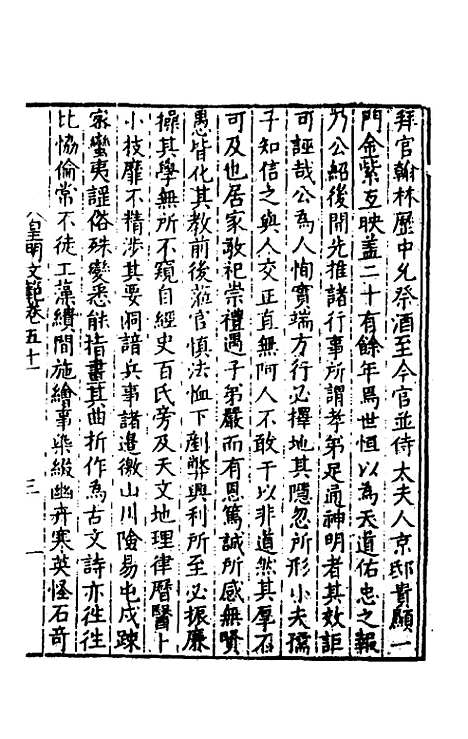 拜官翰林歷中允祭酒至今官並侍太夫人京邸貴顯一
門金紫互映蓋二十有餘年爲世恒以為天道佑忠之報
乃公紹後開先推諸行事所謂孝弟足通神明者其效詎
可誣哉公為人恂實端方行必擇地其隱忽所形小夫孺
子知信之與人交正直無阿人不敢干以非道然其厚不
可及也居家敬祀崇禮遇子弟嚴而有恩篤誠所感無賢
愚皆化其教前後蒞官慎法恤下剷弊興利所至必振廉
操其學無所不窺自經史百氏旁及天文地理律曆醫卜
小技靡不精涉其要洞諳兵事諸邊徼山川險易屯戍疎
家蠻夷謡俗殊變悉能指畫其曲折作為古文詩亦徃徃
比恊倫常不徒工藻繢間施繪事染綴幽卉寒英怪石奇
皇明文範卷五十一
三